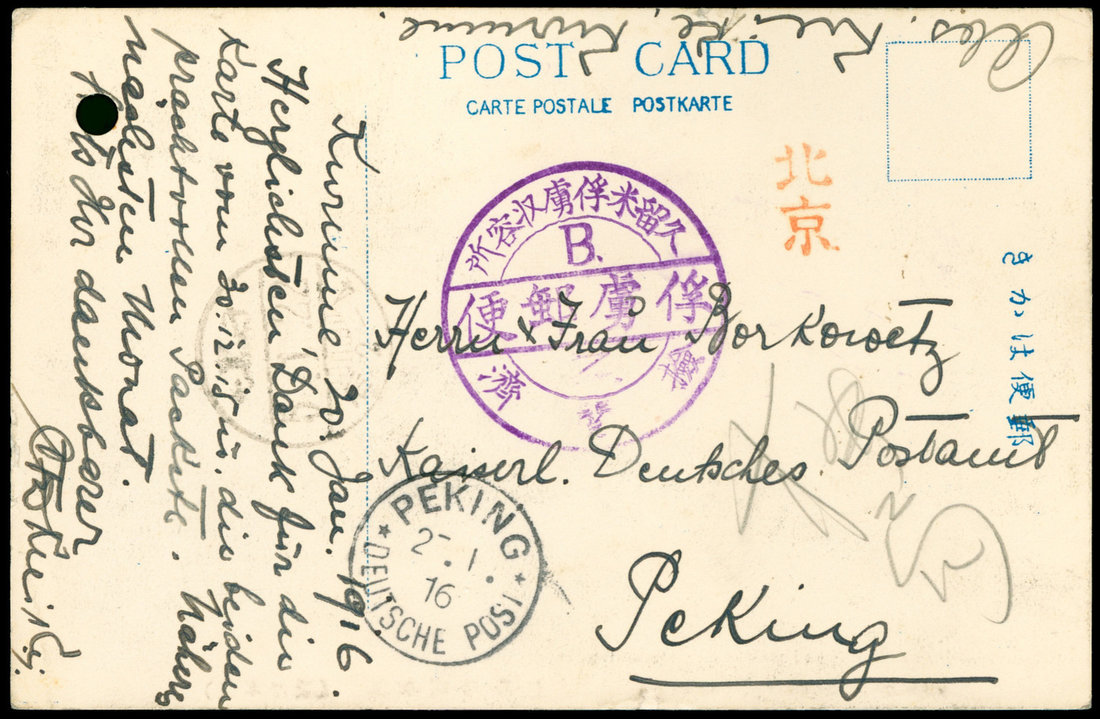 Abs. Kurume
POST CARD
CARTE POSTALE POSTKARTE
北京
きかは便郵
久留米俘虜収容所
B.
俘虜郵便
Herrn & Frau Borkowetz
Kaiserl. Deutsches Postamt
Peking
PEKING
2.1.
16
DEUTSCHE POST
Kurume, 20. Jan. 1916.
Herzlichsten Dank für die
Karte vom 30.12.15 u. die beiden
prachtvollen Packete. Näheres
nächsten Monat.
Ihr dankbarer